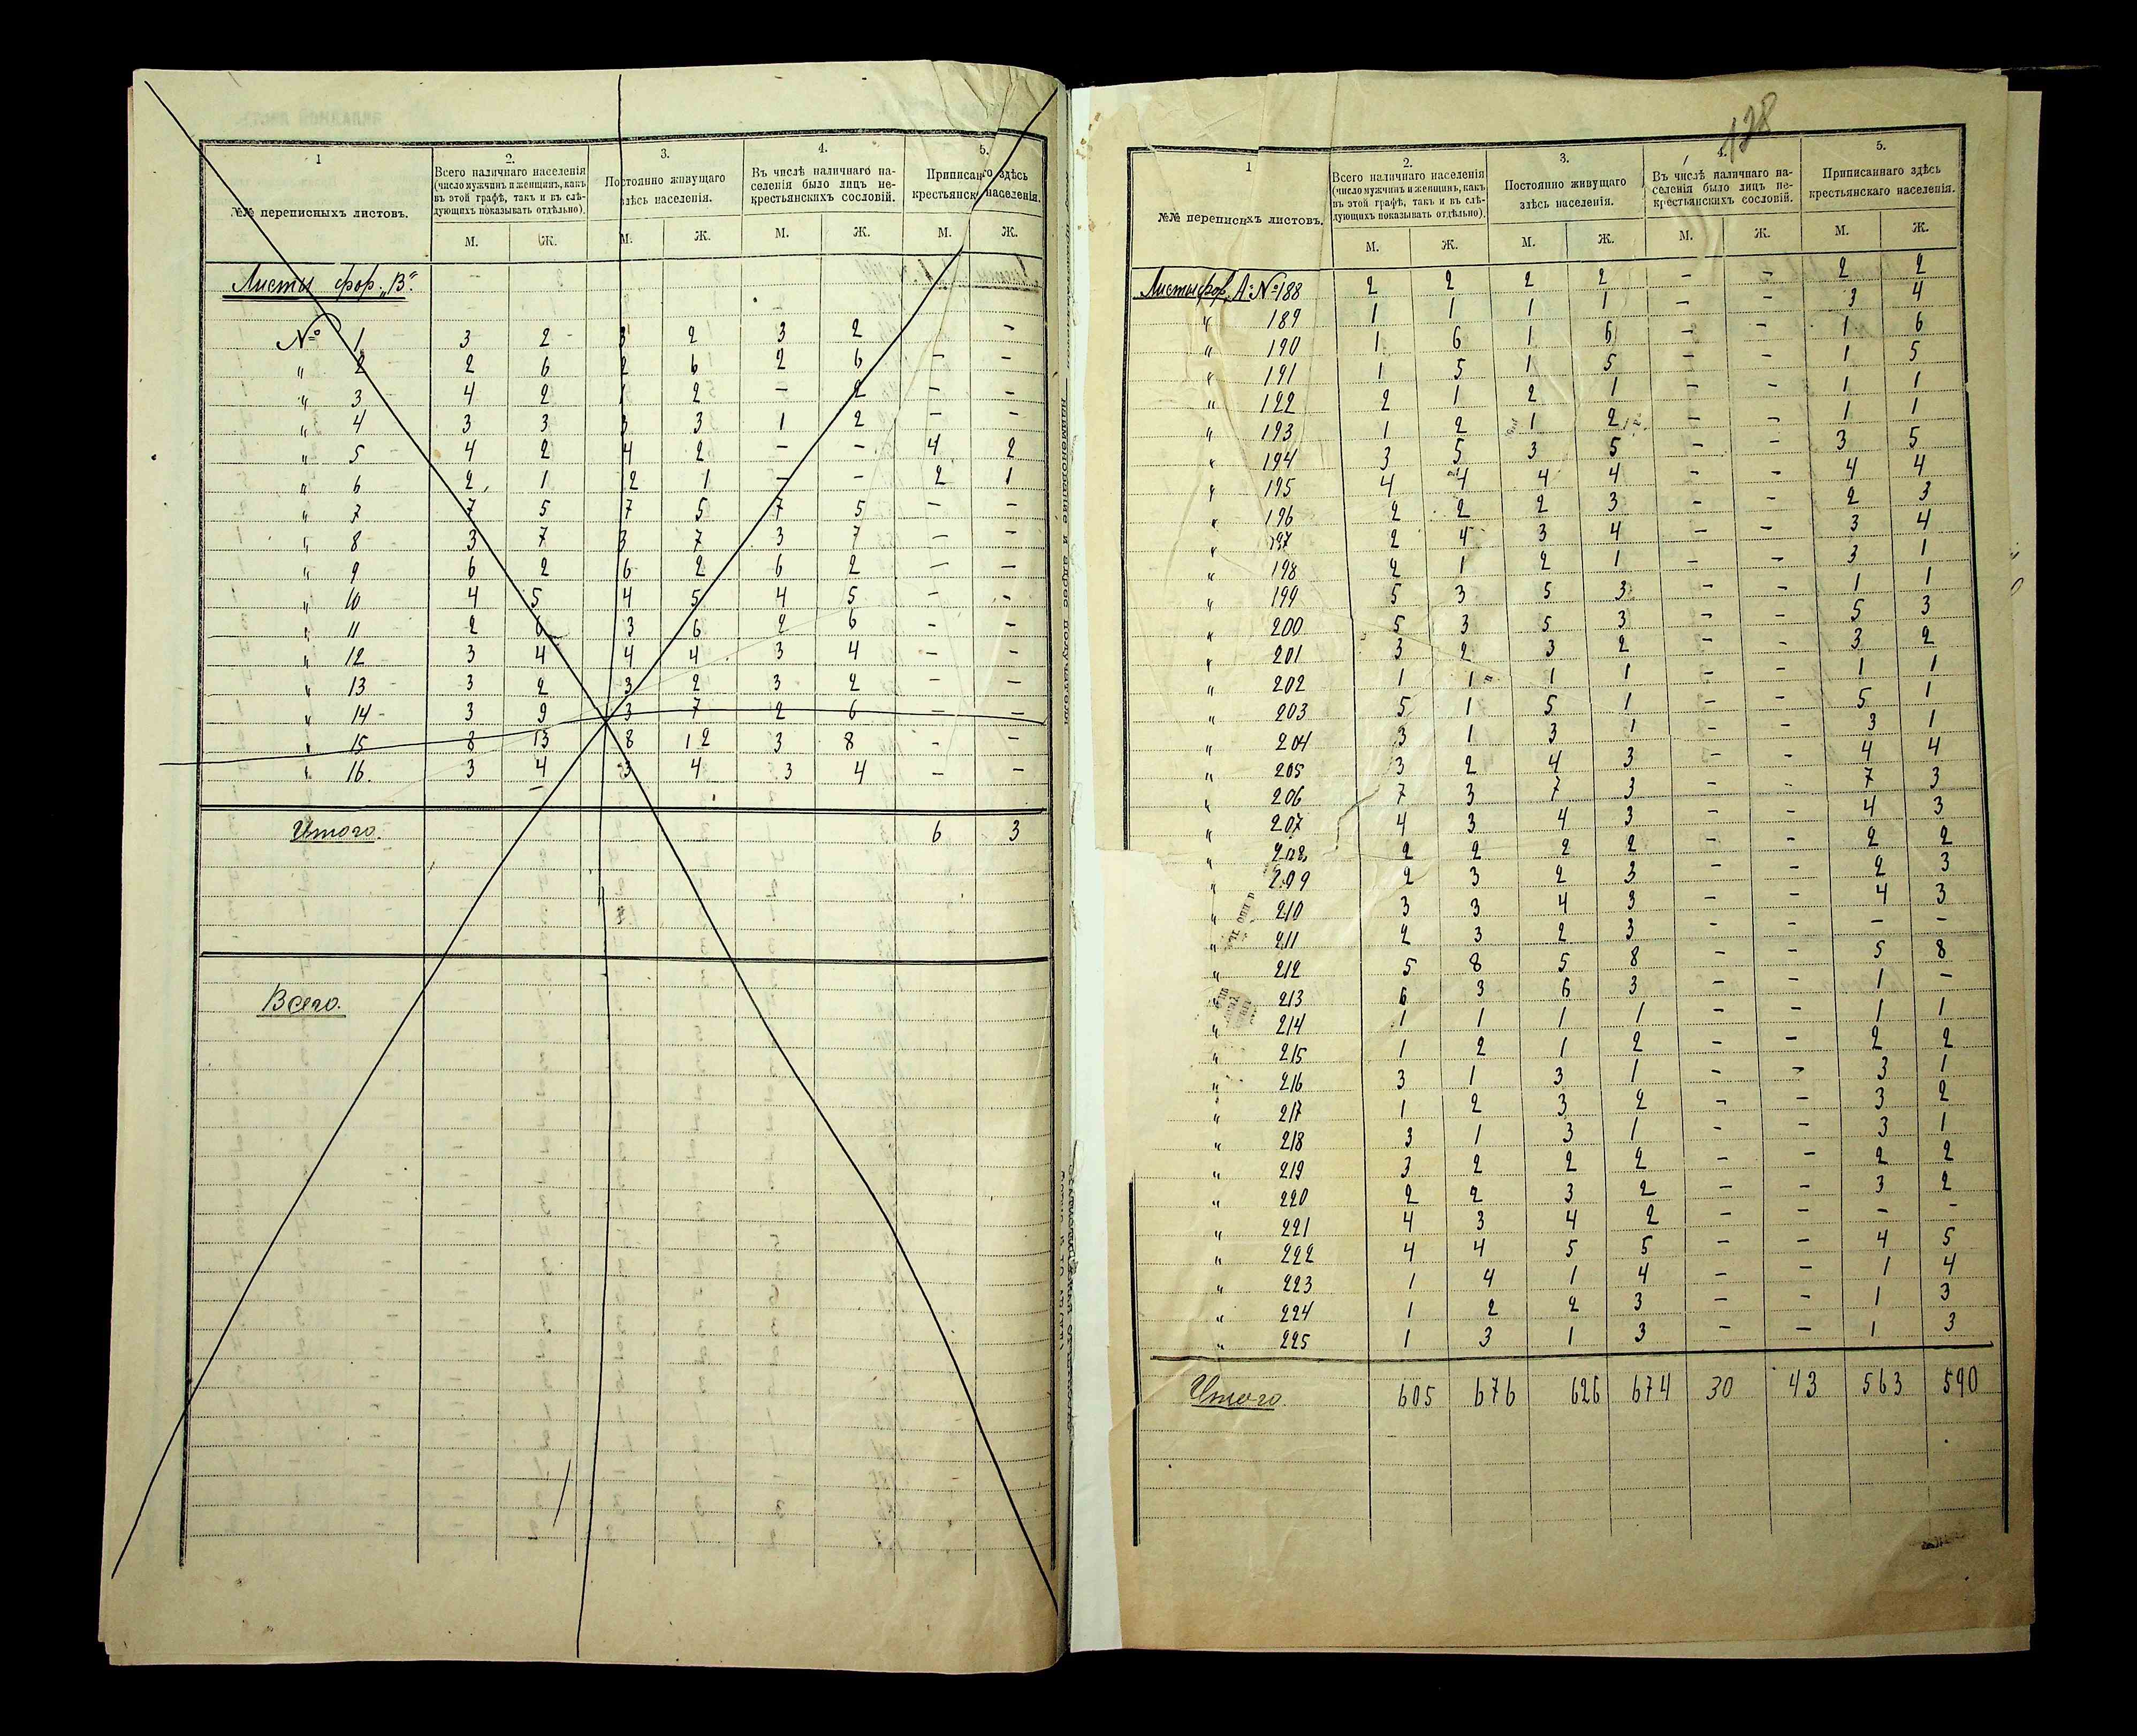 1
2.
3.
4.
5.
№№ переписныхъ листовъ.
Всего наличнаго населенія (число мужчинъ и женщинъ, какъ въ этой графѣ, такъ и въ слѣдующихъ показывать отдѣльно).
Постоянно живущаго здѣсь населенія.
Въ числѣ наличнаго населенія было лицъ некрестьянскихъ сословій.
Приписаннаго здѣсь крестьянскаго населенія.
М. Ж. М. Ж. М. Ж. М. Ж.
Листы фор. „В“.
№ 1 3 2 3 2 3 2 – –
„ 2 2 6 2 6 2 6 – –
„ 3 4 2 1 2 – 2 – –
„ 4 3 3 3 3 1 2 – –
„ 5 4 2 4 2 – – 4 2
„ 6 2 1 2 1 – – 2 1
„ 7 7 5 7 5 7 5 – –
„ 8 3 7 3 7 3 7 – –
„ 9 6 2 6 2 6 2 – –
„ 10 4 5 4 5 4 5 – –
„ 11 2 6 3 6 2 6 – –
„ 12 3 4 4 4 3 4 – –
„ 13 3 2 3 2 3 2 – –
„ 14 3 9 3 7 2 6 – –
„ 15 8 13 8 12 3 8 – –
„ 16. 3 4 3 4 3 4 – –
Итого. 6 3
Всего.
128
1
2.
3.
4.
5.
№№ переписныхъ листовъ.
Всего наличнаго населенія (число мужчинъ и женщинъ, какъ въ этой графѣ, такъ и въ слѣдующихъ показывать отдѣльно).
Постоянно живущаго здѣсь населенія.
Въ числѣ наличнаго населенія было лицъ некрестьянскихъ сословій.
Приписаннаго здѣсь крестьянскаго населенія.
М. Ж. М. Ж. М. Ж. М. Ж.
Листы фор. „А“ № 188 2 2 2 2 – – 2 2
„ 189 1 1 1 1 – – 3 4
„ 190 1 6 1 6 – – 1 6
„ 191 1 5 1 5 – – 1 5
„ 122 2 1 2 1 – – 1 1
„ 193 1 2 1 2 – – 1 1
„ 194 3 5 3 5 – – 3 5
„ 195 4 4 4 4 – – 4 4
„ 196 2 2 2 3 – – 2 3
„ 197 2 4 3 4 – – 3 4
„ 198 2 1 2 1 – – 3 1
„ 199 5 3 5 3 – – 1 1
„ 200 5 3 5 3 – – 5 3
„ 201 3 2 3 2 – – 3 2
„ 202 1 1 1 1 – – 1 1
„ 203 5 1 5 1 – – 5 1
„ 204 3 1 3 1 – – 3 1
„ 205 3 2 4 3 – – 4 4
„ 206 7 3 7 3 – – 7 3
„ 207 4 3 4 3 – – 4 3
„ 208 2 2 2 2 – – 2 2
„ 209 2 3 2 3 – – 2 3
„ 210 3 3 4 3 – – 4 3
„ 211 2 3 2 3 – – – –
„ 212 5 8 5 8 – – 5 8
„ 213 6 3 6 3 – – 1 –
„ 214 1 1 1 1 – – 1 1
„ 215 1 2 1 2 – – 2 2
„ 216 3 1 3 1 – – 3 1
„ 217 1 2 3 2 – – 3 2
„ 218 3 1 3 1 – – 3 1
„ 219 3 2 2 2 – – 2 2
„ 220 2 2 3 2 – – 3 2
„ 221 4 3 4 2 – – – –
„ 222 4 4 5 5 – – 4 5
„ 223 1 4 1 4 – – 1 4
„ 224 1 2 2 3 – – 1 3
„ 225 1 3 1 3 – – 1 3
Итого 605 676 626 674 30 43 563 590